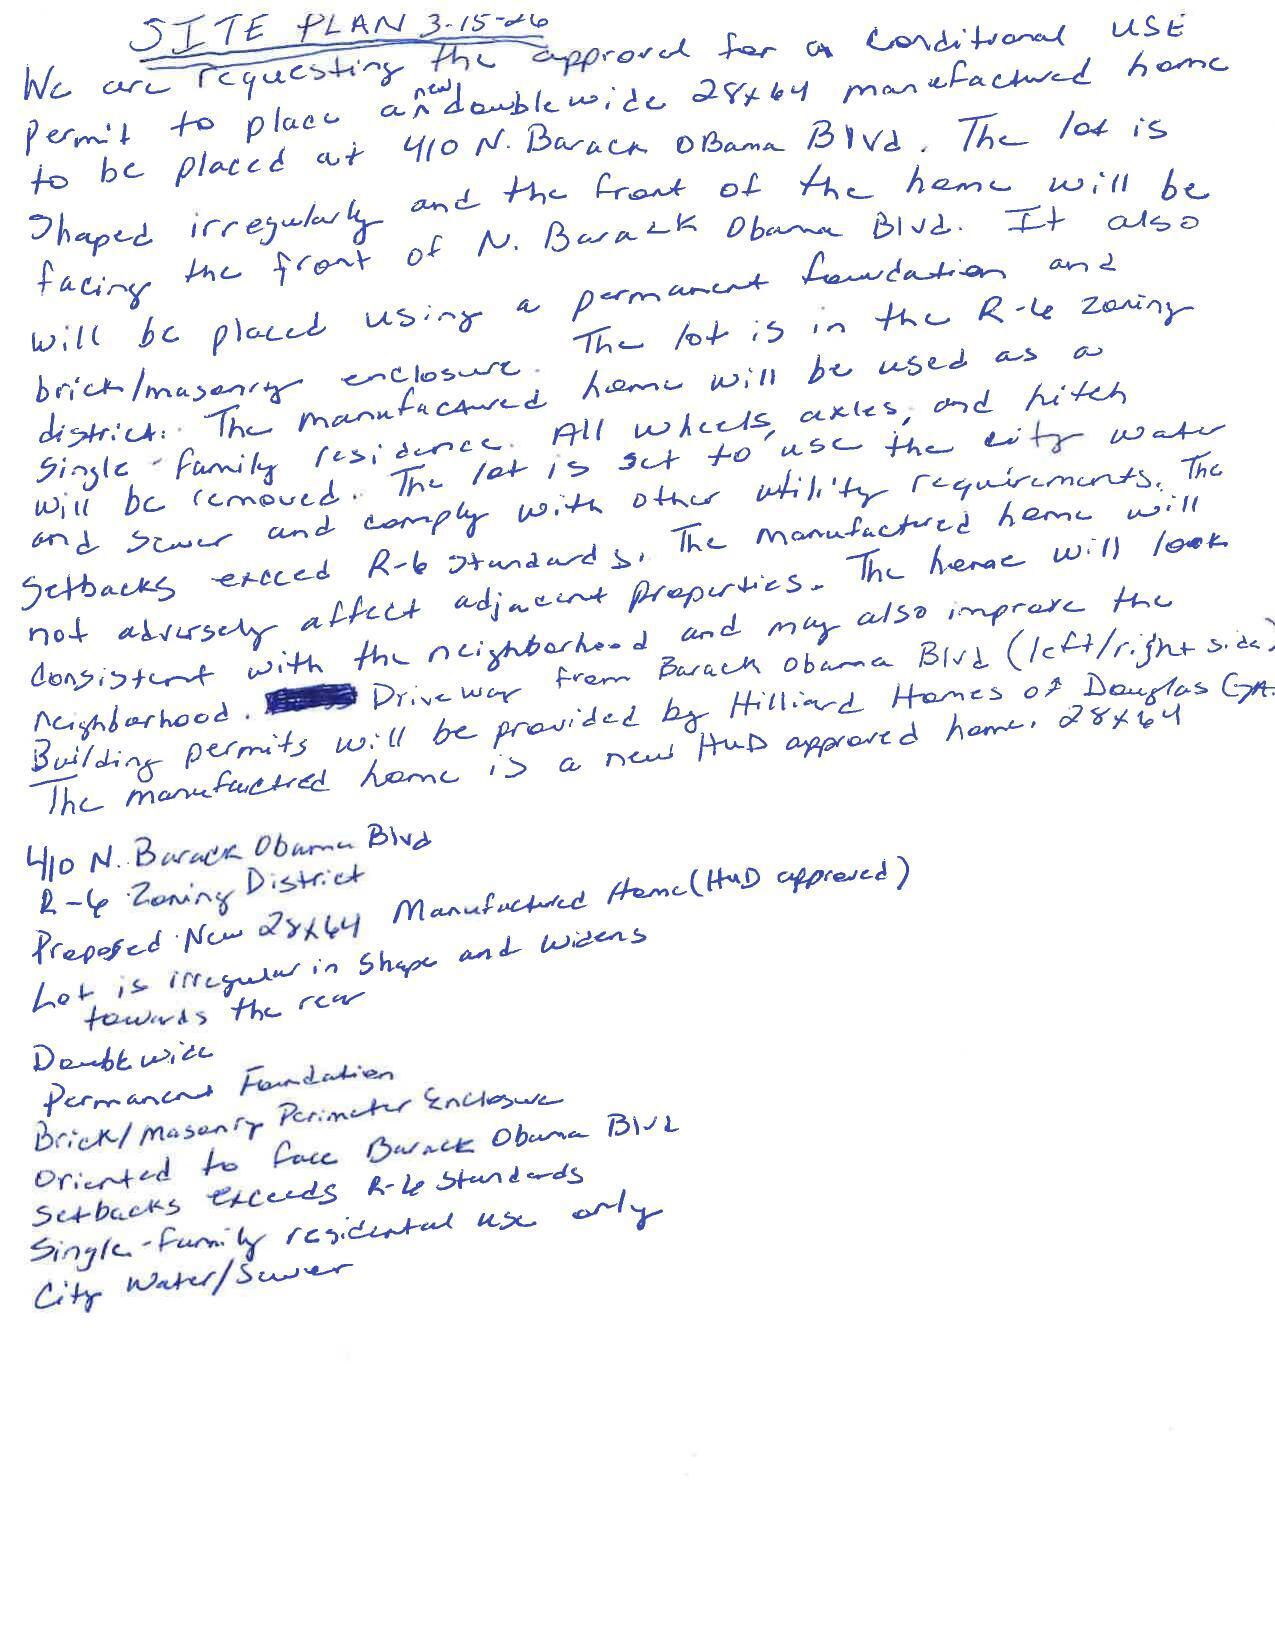 SITE PLAN 3-15-26
We are requesting the approval for a Conditional USE
Permit to place a new doublewide 28x64 manufactured home
to be placed at 410 N. Barack OBama Blvd. The lot is
Shaped irregularly and the front of the home will be
facing the front of N. Barack Obama Blvd. It also
will be placed using a permanent foundation and
brick/masonry enclosure. The lot is in the R-6 zoning
district. The manufactured home will be used as a
single-family residence. All wheels, axles, and hitch
will be removed. The lot is set to use the city water
and sewer and comply with other utility requirements. The
setbacks exceed R-6 standards. The manufactured home will
not adversely affect adjacent properties. The home will look
consistent with the neighborhood and may also improve the
neighborhood. Driveway from Barack Obama Blvd (left/right side)
Building permits will be provided by Hilliard Homes of Douglas GA.
The manufactred home is a new HUD approved home. 28x64
410 N. Barack Obama Blvd
R-6 Zoning District
Proposed New 28x64 Manufactured Home (HUD approved)
Lot is irregular in shape and widens
towards the rear
Doublewide
Permanent Foundation
Brick/Masonry Perimeter Enclosure
Oriented to face Barack Obama Blvd
Setbacks exceeds R-6 Standards
Single-family residental use only
City Water/Sewer